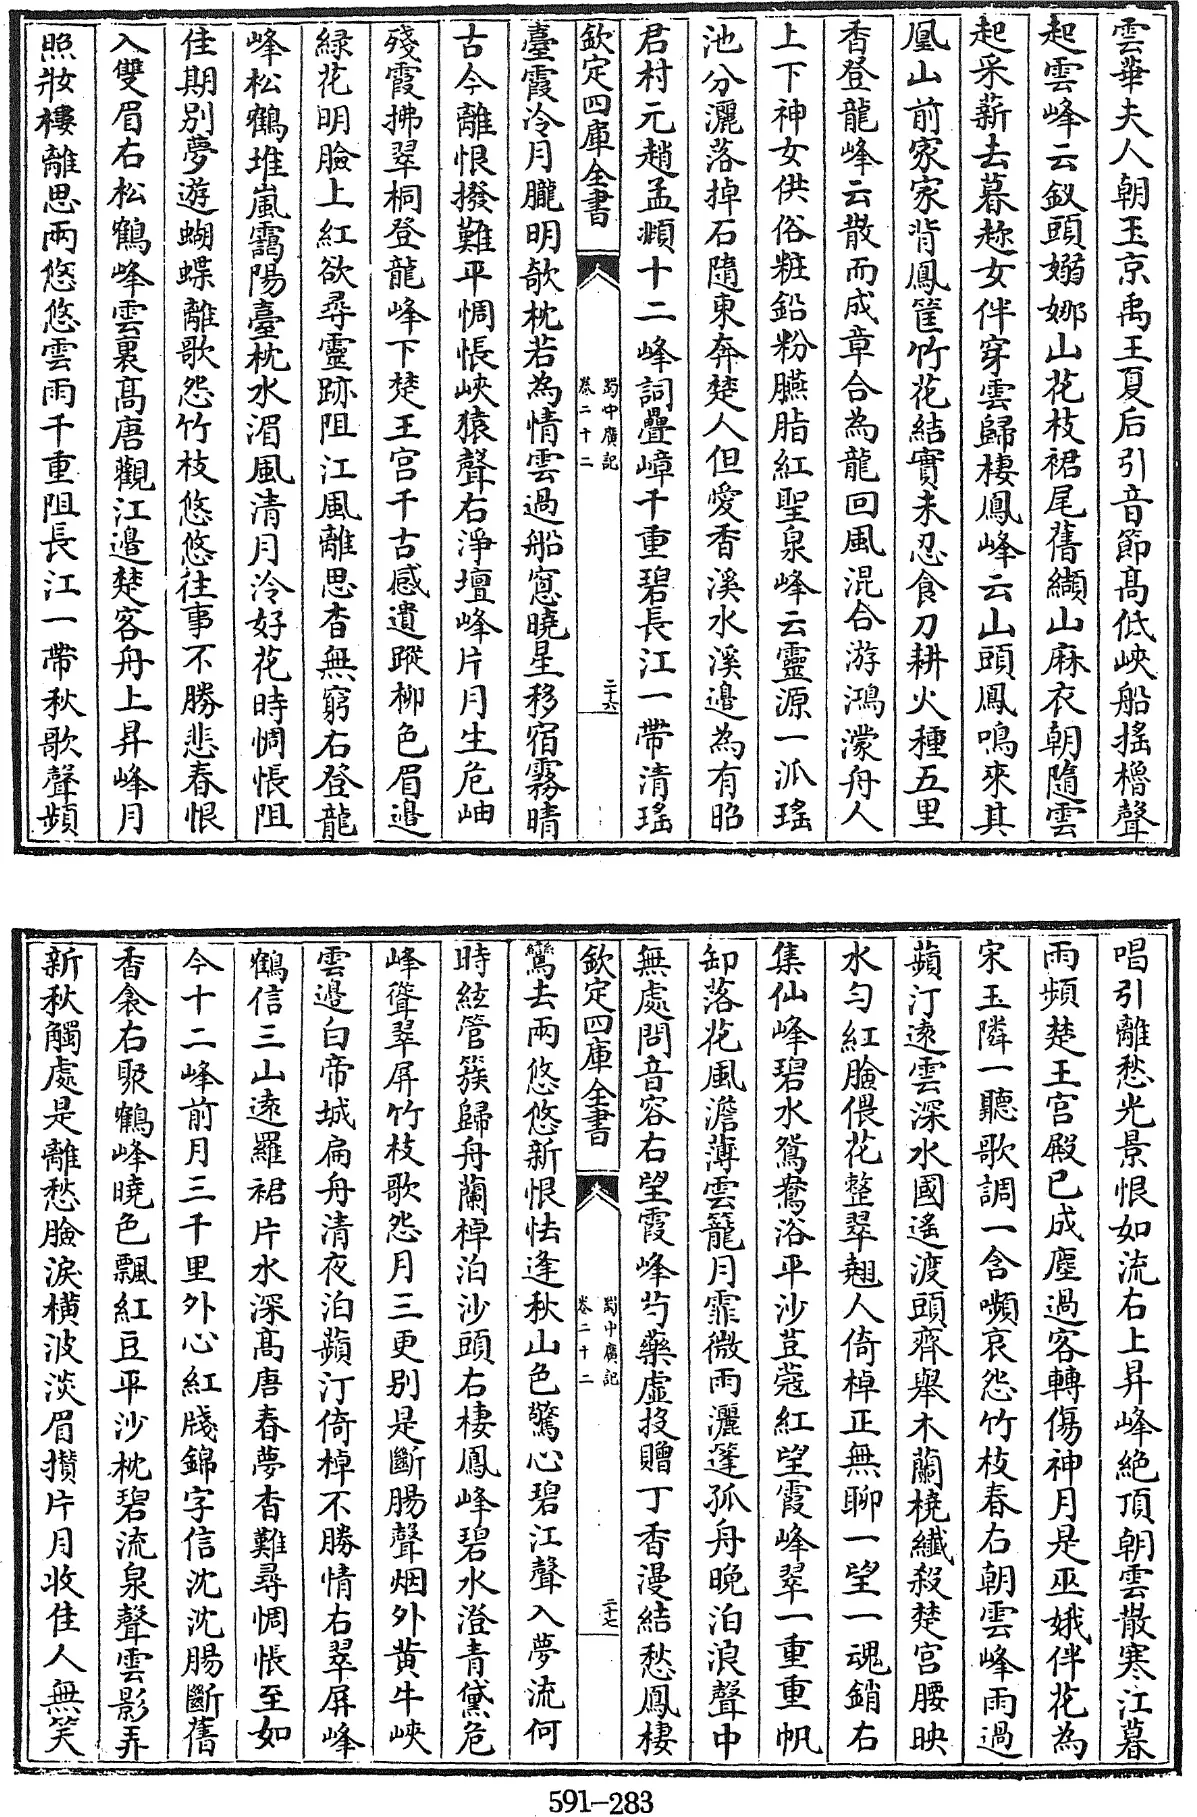 雲華夫人朝玉京禹王夏后引音節髙低峽船搖櫓聲
起雲峰云釵頭嫋娜山花枝裙尾舊纈山麻衣朝隨雲
起采薪去暮趂女伴穿雲歸棲鳳峰云山頭鳳鳴來其
凰山前家家背鳳筐竹花結實未忍食刀耕火種五里
香登龍峰云散而成章合為龍回風混合游鴻濛舟人
上下神女供俗粧鉛粉臙脂紅聖泉峰云靈源一派瑤
池分灑落掉石隨東奔楚人但愛香溪水溪邉為有昭
君村元趙孟頫十二峰詞疊嶂千重碧長江一帶清瑤
欽定四庫全書
蜀中廣記
卷二十二
二十六
臺霞冷月朧明欹枕若為情雲過船窻曉星移宿霧晴
古今離恨撥難平惆悵峽猿聲右淨壇峰片月生危岫
殘霞拂翠桐登龍峰下楚王宫千古感遺蹤柳色眉邉
緑花明臉上紅欲尋靈跡阻江風離思杳無窮右登龍
峰松鶴堆嵐靄陽臺枕水湄風清月冷好花時惆悵阻
佳期别夢遊蝴蝶離歌怨竹枝悠悠往事不勝悲春恨
入雙眉右松鶴峰雲裏髙唐觀江邉楚客舟上昇峰月
照妝樓離思兩悠悠雲雨千重阻長江一帶秋歌聲頻
唱引離愁光景恨如流右上昇峰絶頂朝雲散寒江暮
雨頻楚王宫殿已成塵過客轉傷神月是巫娥伴花為
宋玉隣一聽歌調一含嚬哀怨竹枝春右朝雲峰雨過
蘋汀遠雲深水國遙渡頭齊舉木蘭橈纖殺楚宫腰映
水勻紅臉偎花整翠翹人倚棹正無聊一望一魂銷右
集仙峰碧水鴛鴦浴平沙荳蔻紅望霞峰翠一重重帆
卸落花風澹薄雲籠月霏微雨灑篷孤舟晚泊浪聲中
無處問音容右望霞峰芍藥虚投贈丁香漫結愁鳳棲
欽定四庫全書
蜀中廣記
卷二十二
二十七
鸞去兩悠悠新恨怯逢秋山色驚心碧江聲入夢流何
時絃管簇歸舟蘭棹泊沙頭右棲鳳峰碧水澄青黛危
峰聳翠屏竹枝歌怨月三更别是斷腸聲烟外黄牛峽
雲邉白帝城扁舟清夜泊蘋汀倚棹不勝情右翠屏峰
鶴信三山遠羅裙片水深髙唐春夢杳難尋惆悵至如
今十二峰前月三千里外心紅牋錦字信沈沈腸斷舊
香衾右聚鶴峰曉色飄紅豆平沙枕碧流泉聲雲影弄
新秋觸處是離愁臉淚横波淡眉攢片月收佳人無笑
591-283